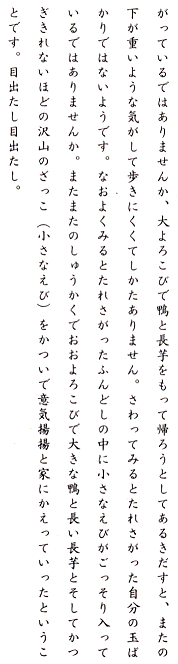 がっているではありませんか、大よろこびで鴨と長芋をもって帰ろうとしてあるきだすと、またの
下が重いような気がして歩きにくくてしかたありません。さわってみるとたれさがった自分の玉ば
かりではないようです。なおよくみるとたれさがったふんどしの中に小さなえびがごっそり入って
いるではありませんか。またまたのしゅうかくでおおよろこびで大きな鴨と長い長芋とそしてかつ
ぎきれないほどの沢山のざっこ（小さなえび）をかついで意気揚揚と家にかえっていったというこ
とです。目出たし目出たし。